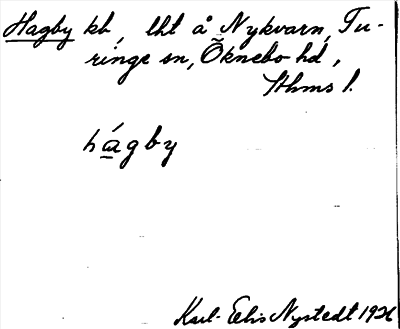 Hagby kb, lht å Nykvarn, Tu-
ringe sn, Õknebo hd,
Sthms l.
hágby
Karl-Elis Nystedt